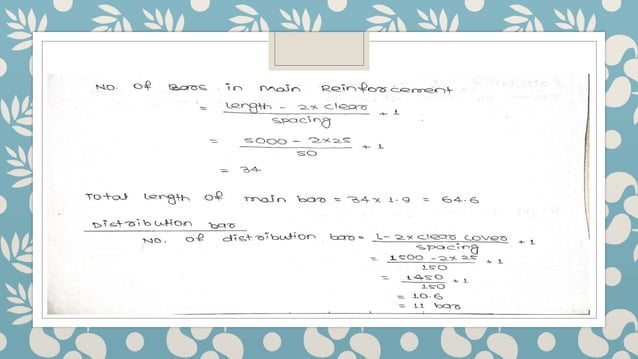 No. of Bars in main Reinforcement
= Length - 2x clear / spacing + 1
= 5000 - 2x25 / 50 + 1
= 34
Total Length of main bar = 34 x 1.9 = 64.6
Distribution bar
No. of distribution bar = L - 2x clear cover / spacing + 1
= 1500 - 2x25 / 150 + 1
= 1450 / 150 + 1
= 10.6
= 11 bar